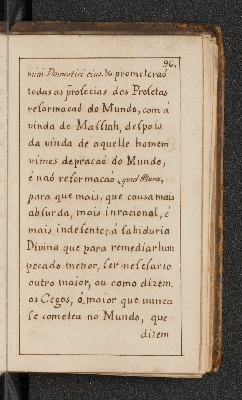 96.
mini Domestici eius. & prometeraõ
todas as profecias dos Profetas
reformacaõ do Mundo, com á
vinda do Massiah, despois
da vinda de aquelle homem
vimos depracaõ do Mundo,
é naõ reformacaõ, quid Plura,
para que mais, que cousa mais
absurda, mais inracional, é
mais indesente; á sabiduria
Divina que para remediar hum
pecado menor, ser nesesario
outro maior, ou como dizem
os Cegos, ó maior que nunca
se cometeu no Mundo, que
dizem